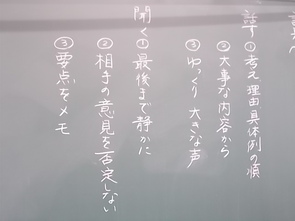 話す①考え 理由 具体例の順
②大事な内容から
③ゆっくり 大きな声
聞く①最後まで静かに
②相手の意見を否定しない
③要点をメモ